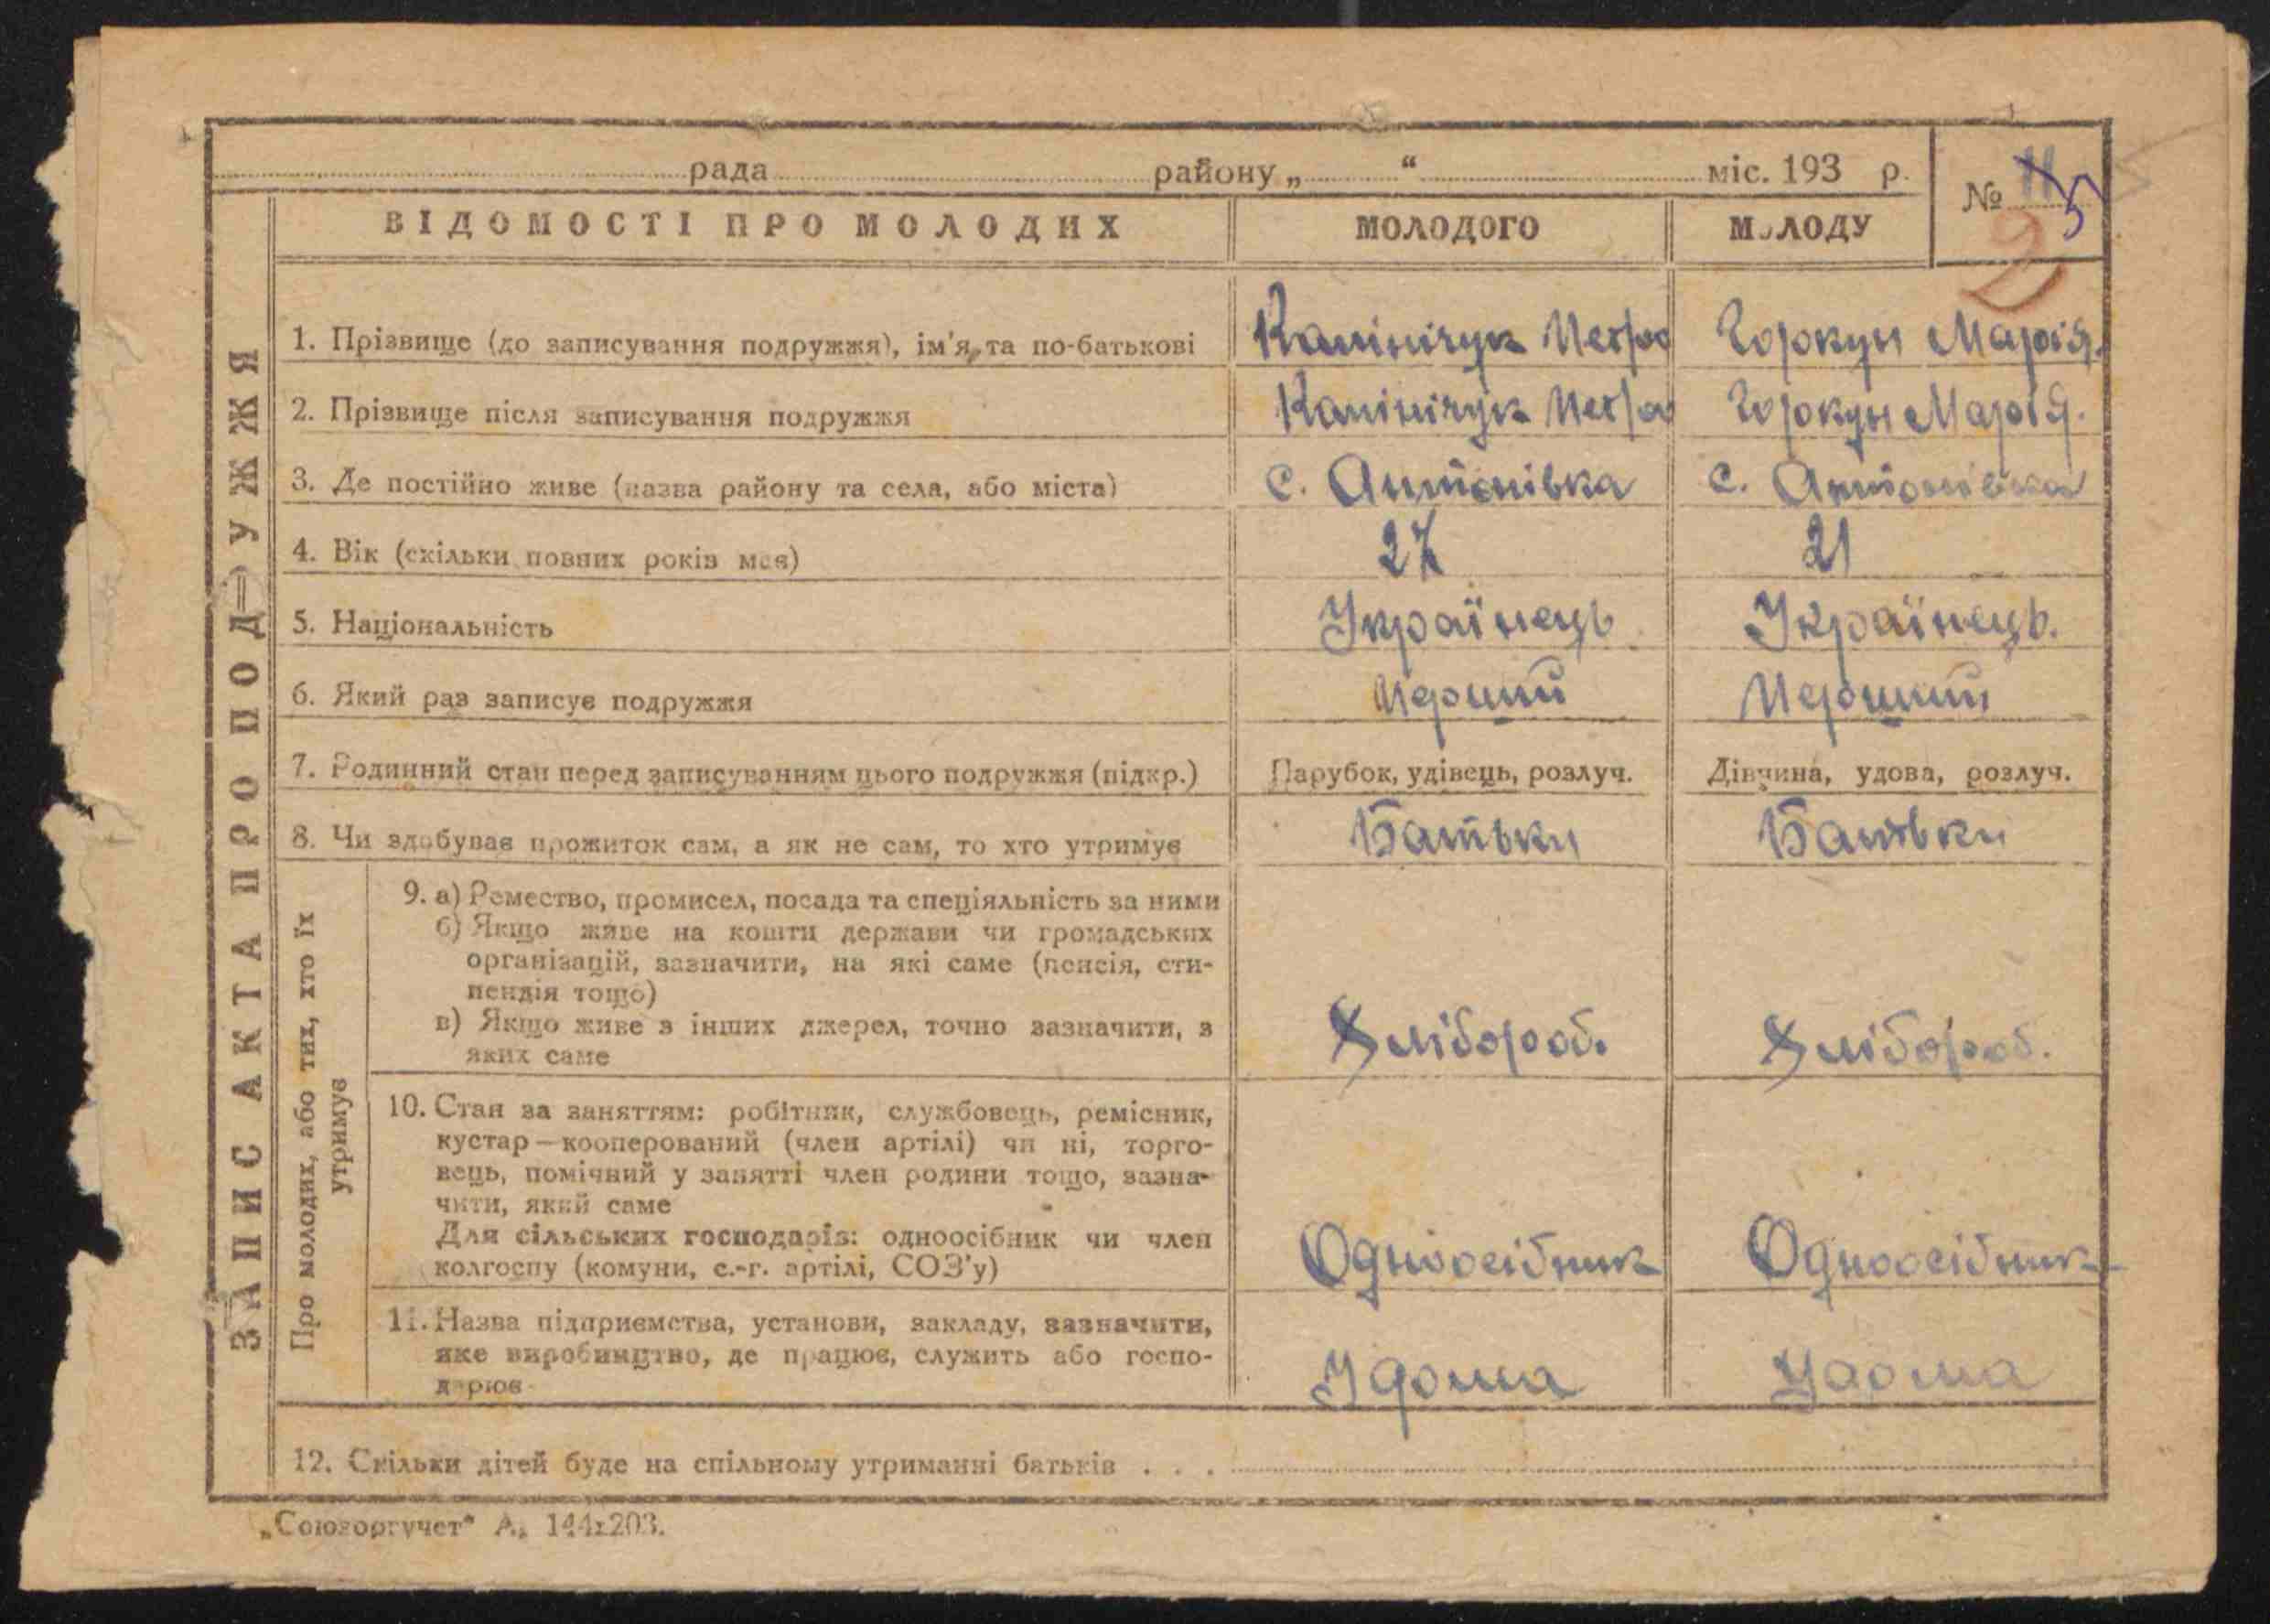 рада району „ “ міс. 193 р.
№ 5
2
ВІДОМОСТІ ПРО МОЛОДИХ МОЛОДОГО МОЛОДУ
ЗАПИС АКТА ПРО ПОДРУЖЖЯ
1. Прізвище (до записування подружжя), ім'я, та по-батькові Камінчук Петро Горкун Марія.
2. Прізвище після записування подружжя Камінчук Петро Горкун Марія.
3. Де постійно живе (назва району та села, або міста) с. Антонівка с. Антонівка
4. Вік (скільки повних років має) 27 21
5. Національність Українець Українець.
6. Який раз записує подружжя Перший Перший
7. Родинний стан перед записуванням цього подружжя (підкр.) Парубок, удівець, розлуч. Дівчина, удова, розлуч.
8. Чи здобуває прожиток сам, а як не сам, то хто утримує Батьки Батьки
Про молодих, або тих, хто їх
утримує
9. а) Ремество, промисел, посада та спеціяльність за ними
б) Якщо живе на кошти держави чи громадських
організацій, зазначити, на які саме (пенсія, сти-
пендія тощо)
в) Якщо живе з інших джерел, точно зазначити, з
яких саме
Хлібороб. Хлібороб.
10. Стан за заняттям: робітник, службовець, ремісник,
кустар—кооперований (член артілі) чи ні, торго-
вець, помічний у занятті член родини тощо, зазна-
чити, який саме
Для сільських господарів: одноосібник чи член
колгоспу (комуни, с.-г. артілі, СОЗ'у)
Одноосібник Одноосібник
11. Назва підприємства, установи, закладу, зазначити,
яке виробництво, де працює, служить або госпо-
дарює
Удома Удома
12. Скільки дітей буде на спільному утриманні батьків . . .
„Союзоргучет“ А₅ 144х203.